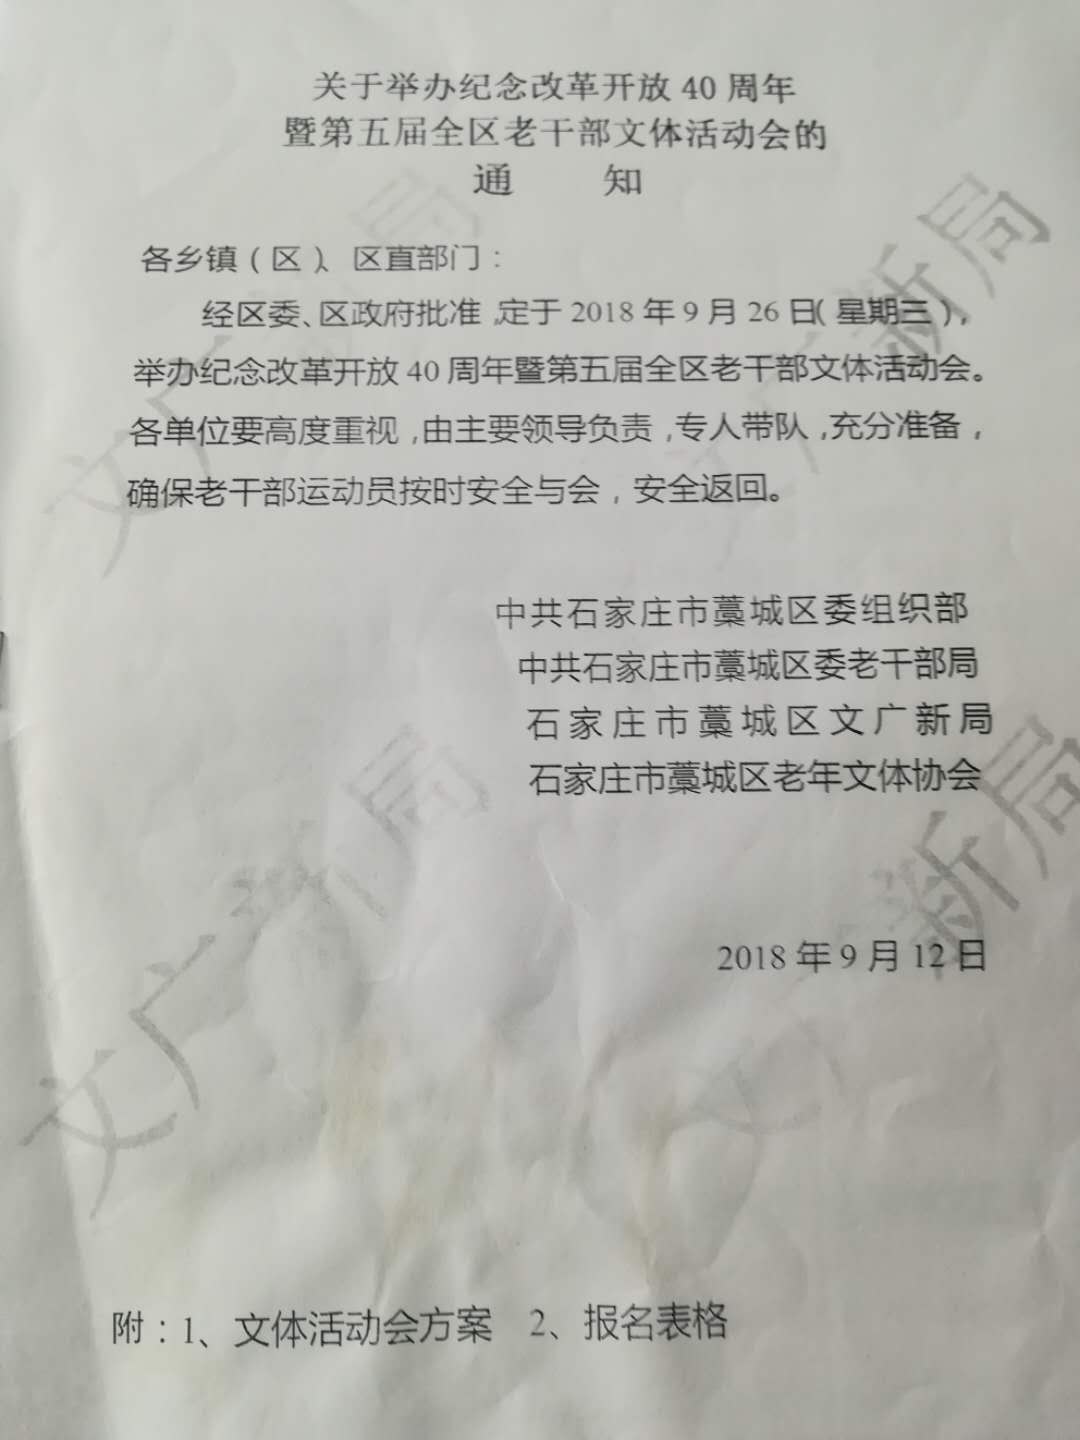 关于举办纪念改革开放 40 周年
暨第五届全区老干部文体活动会的
通 知
各乡镇（区）、区直部门：
经区委、区政府批准，定于 2018 年 9 月 26 日（星期三），
举办纪念改革开放 40 周年暨第五届全区老干部文体活动会。
各单位要高度重视，由主要领导负责，专人带队，充分准备，
确保老干部运动员按时安全与会，安全返回。
中共石家庄市藁城区委组织部
中共石家庄市藁城区委老干部局
石家庄市藁城区文广新局
石家庄市藁城区老年文体协会
2018 年 9 月 12 日
附：1、文体活动会方案 2、报名表格
文广新局
文广新局
文广新局
文广新局